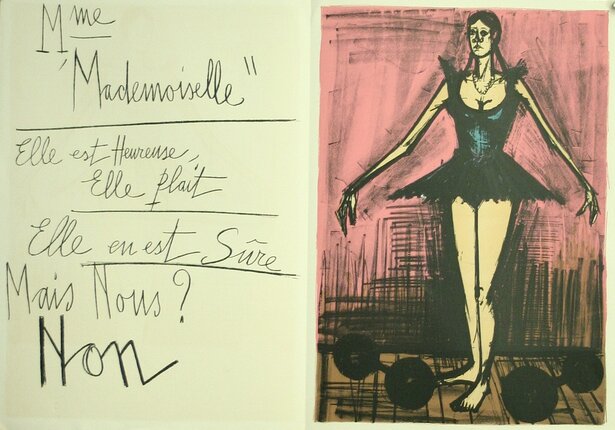 Mme
"Mademoiselle"
Elle est Heureuse,
Elle plait
Elle en est Sûre
Mais Nous?
Non